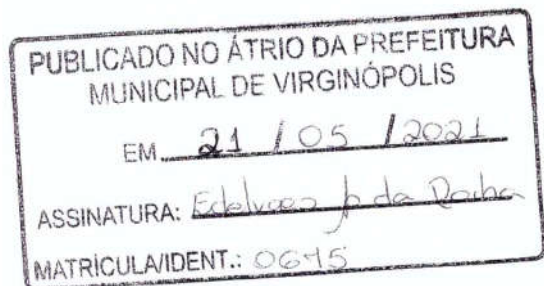 PUBLICADO NO ÁTRIO DA PREFEITURA
MUNICIPAL DE VIRGINÓPOLIS
EM 21 / 05 / 2021
ASSINATURA: da Rocha
MATRÍCULA/IDENT.: